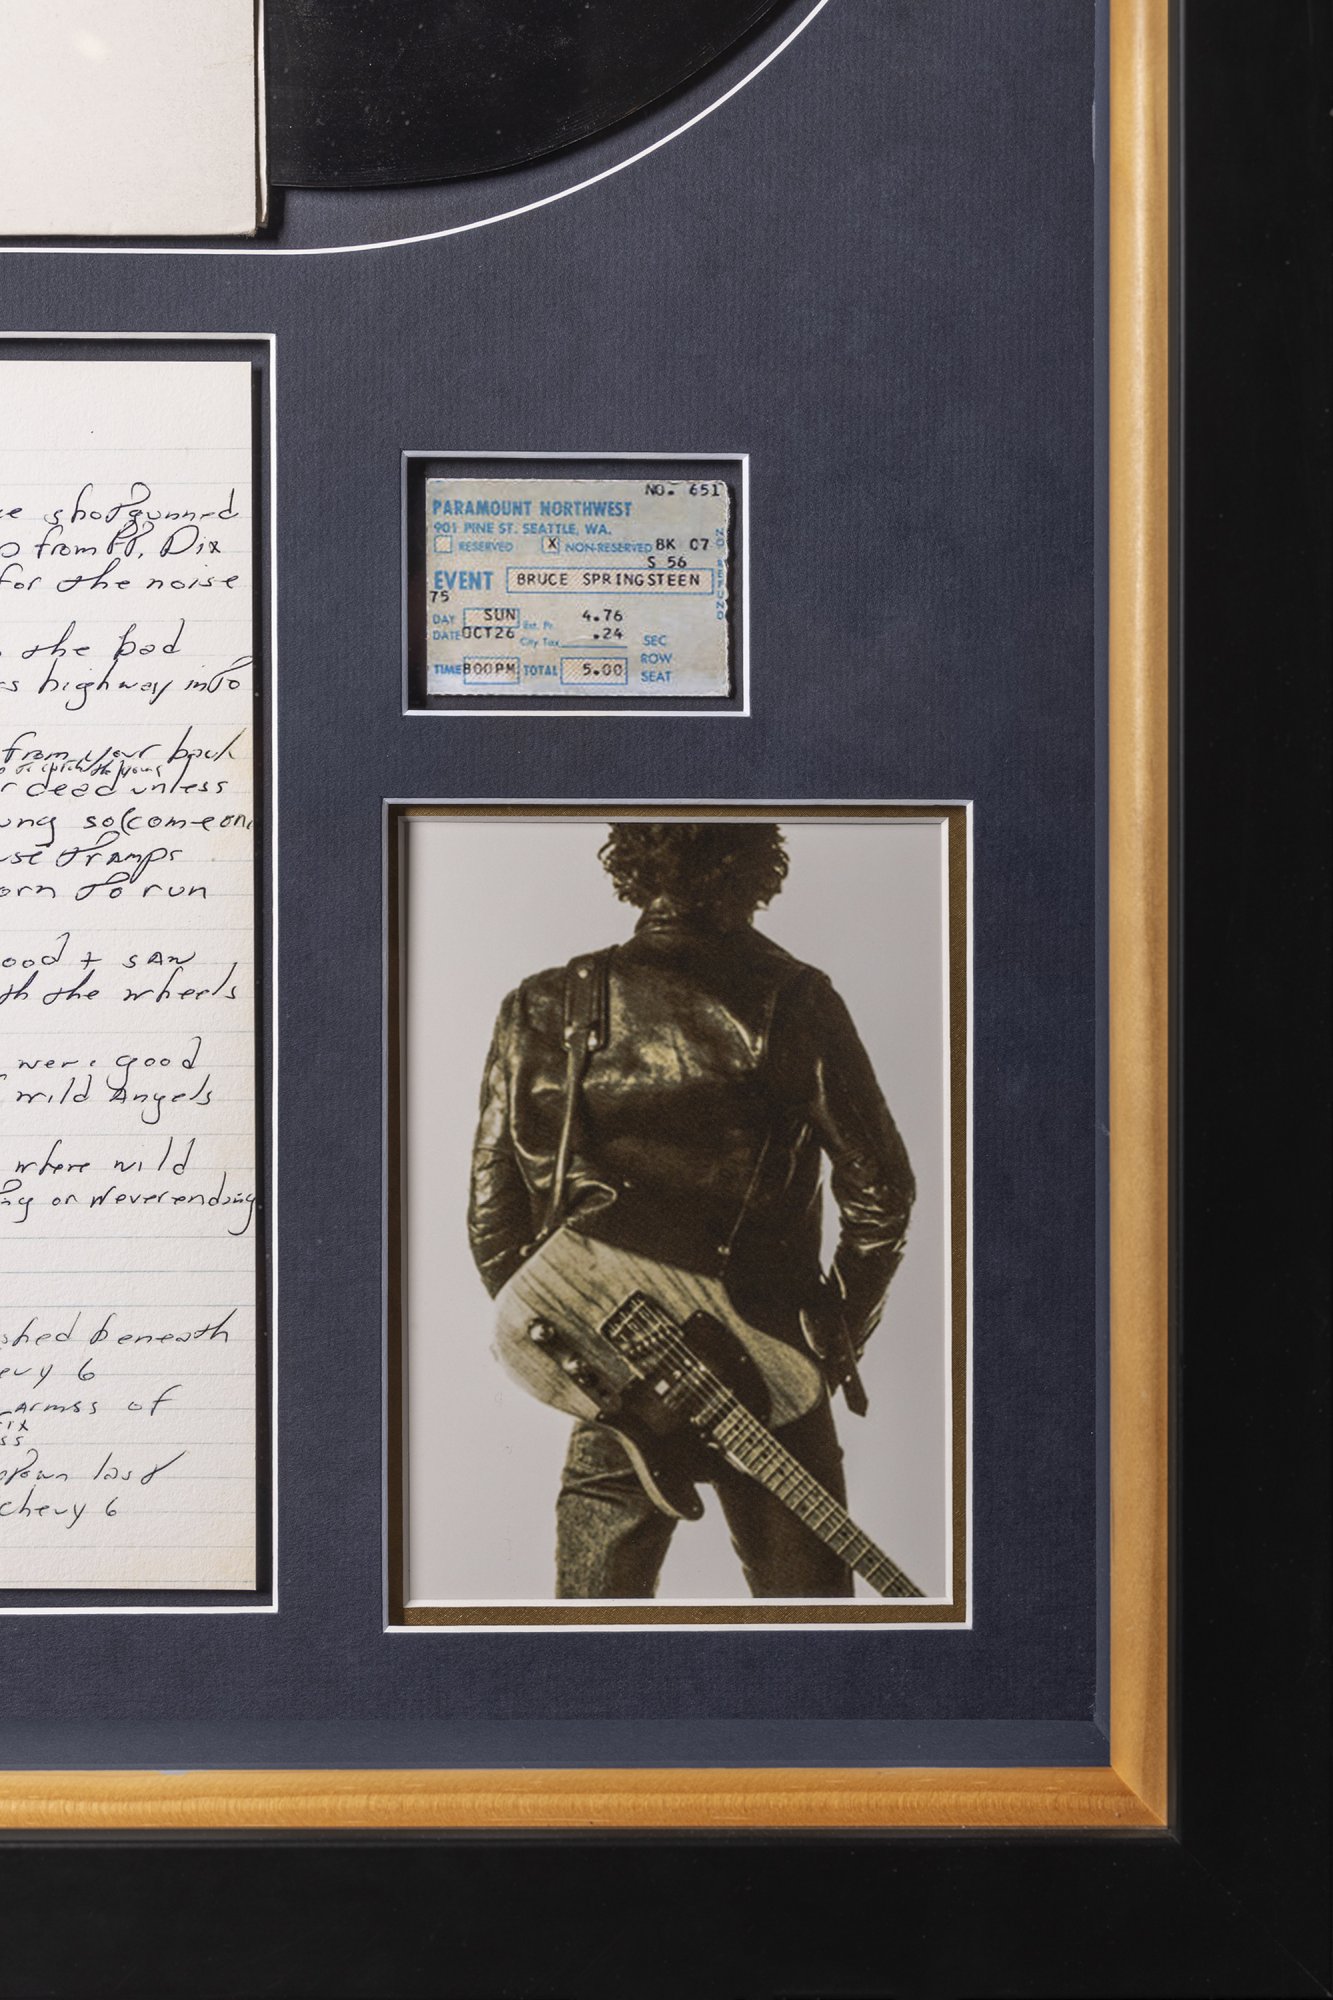 shotgunned
from Ft. Dix
for the noise
the bad
highway into
from your back
dead unless
so (someone
tramps
to run
+ saw
the wheels
were good
wild Angels
where wild
or Neverending
beneath
6
of
last
chevy 6
NO. 651
PARAMOUNT NORTHWEST
901 PINE ST. SEATTLE, WA.
RESERVED X NON-RESERVED BK 07
S 56
EVENT BRUCE SPRINGSTEEN
75
DAY SUN Est. Pr. 4.76
DATE OCT26 City Tax .24 SEC
ROW
TIME 800PM TOTAL 5.00 SEAT
NO REFUND